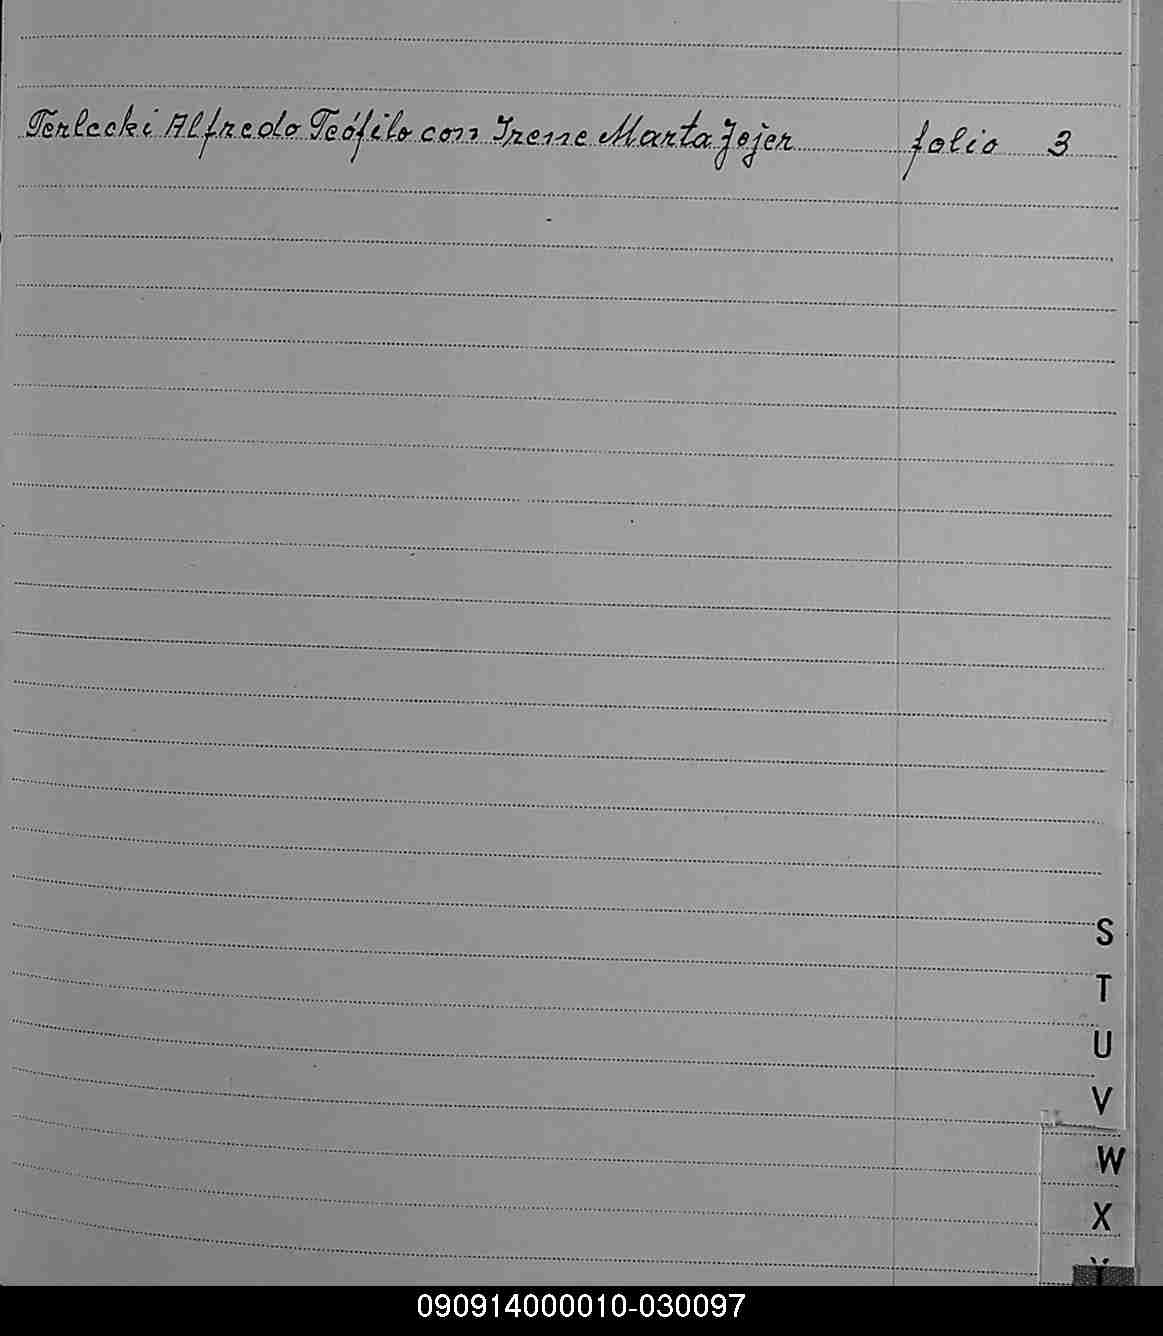 Terlecki Alfredo Teófilo con Irene Marta Jojer folio 3
S
T
U
V
W
X
Y
090914000010-030097